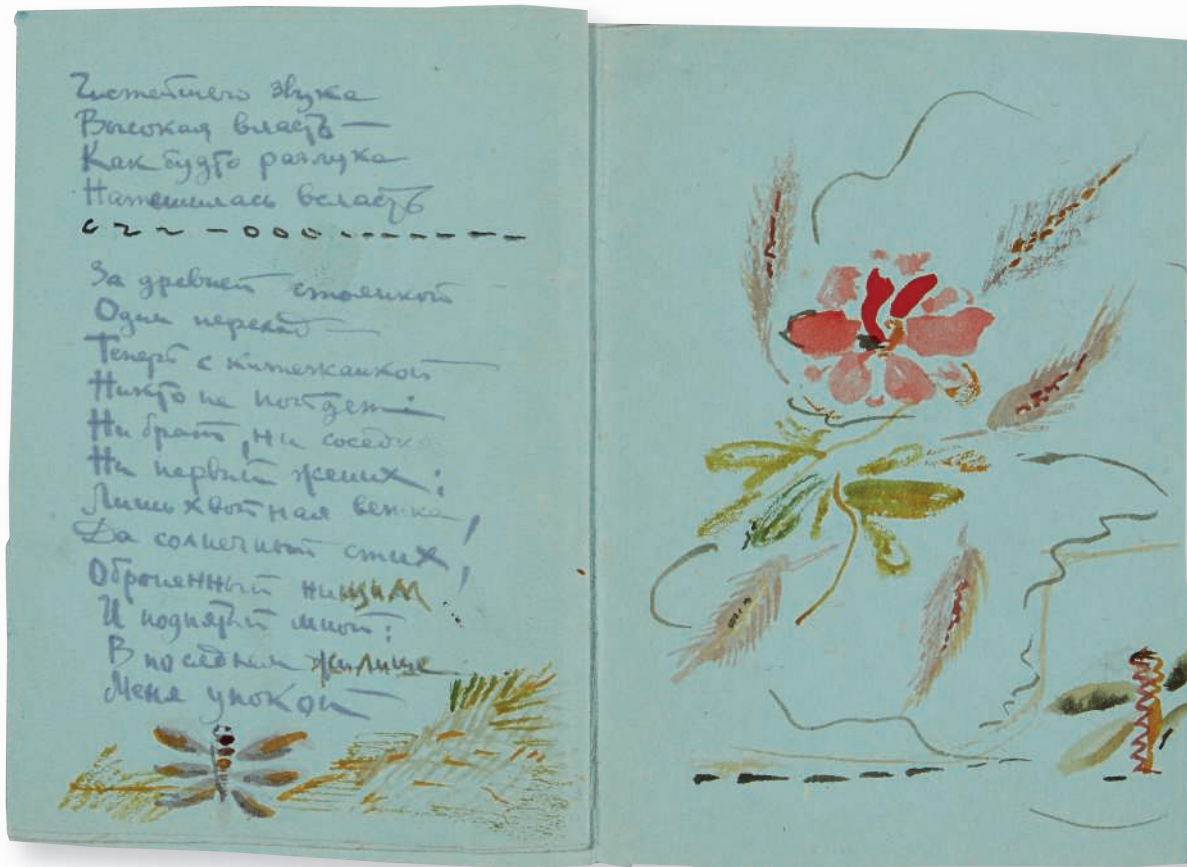 Чистейшего звука
Высокая власть —
Как будто разлука
Натешилась всласть
За древней стоянкой
Один переход —
Теперь с китежанкой
Никто не пойдет:
Ни брат, ни соседка
Ни первый жених:
Лишь хвойная ветка,
Да солнечный стих,
Оброненный нищим
И поднятый мной:
В последнем жилище
Меня упокой